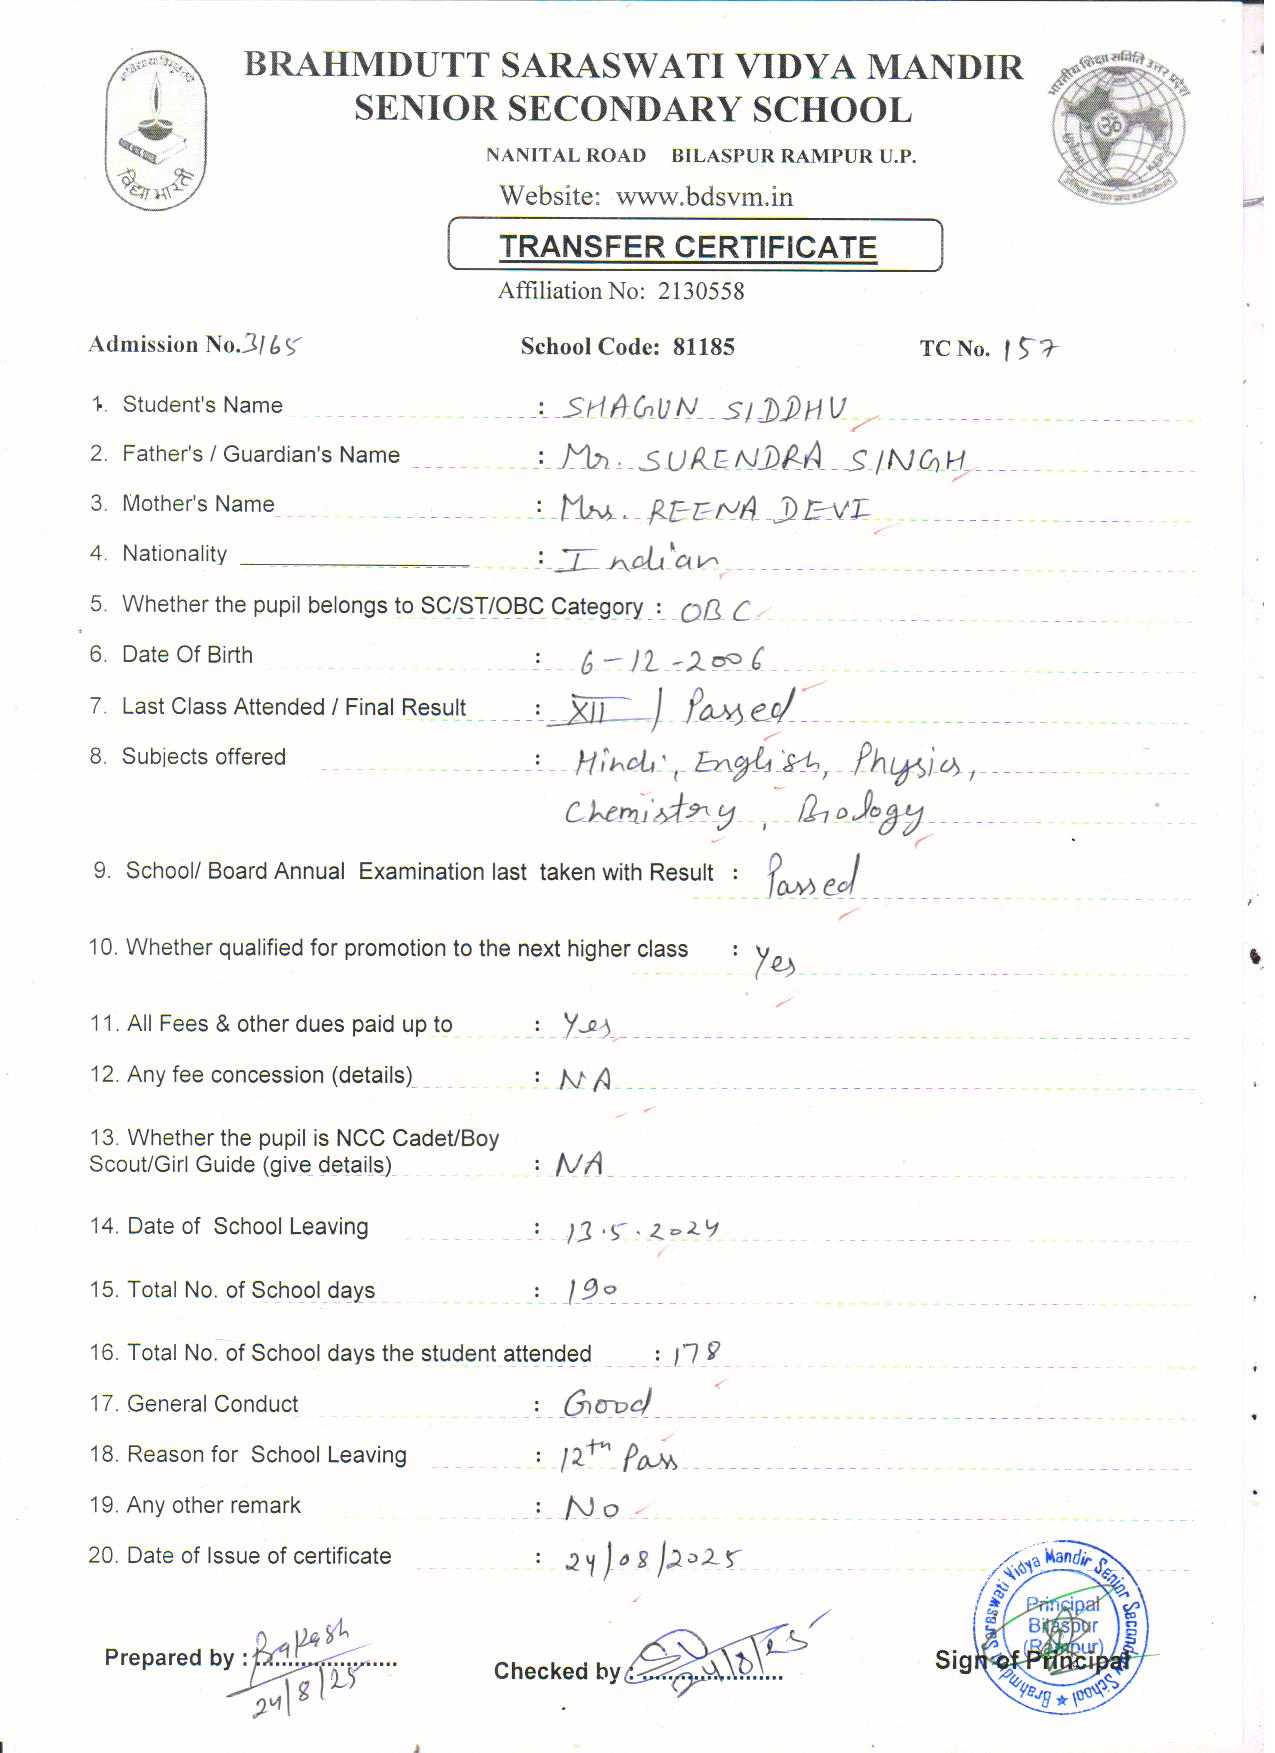 BRAHMDUTT SARASWATI VIDYA MANDIR
SENIOR SECONDARY SCHOOL
NANITAL ROAD BILASPUR RAMPUR U.P.
विद्या भारती
भारतीय शिक्षा समिति उत्तर प्रदेश
Website: www.bdsvm.in
TRANSFER CERTIFICATE
Affiliation No: 2130558
Admission No. 3165 School Code: 81185 TC No. 157
1. Student's Name : SHAGUN SIDDHU
2. Father's / Guardian's Name : Mr. SURENDRA SINGH
3. Mother's Name : Mrs. REENA DEVI
4. Nationality : Indian
5. Whether the pupil belongs to SC/ST/OBC Category : OBC
6. Date Of Birth : 6-12-2006
7. Last Class Attended / Final Result : XII / Passed
8. Subjects offered : Hindi, English, Physics,
Chemistory, Biology
9. School/ Board Annual Examination last taken with Result : Passed
10. Whether qualified for promotion to the next higher class : Yes
11. All Fees & other dues paid up to : Yes
12. Any fee concession (details) : NA
13. Whether the pupil is NCC Cadet/Boy
Scout/Girl Guide (give details) : NA
14. Date of School Leaving : 13.5.2024
15. Total No. of School days : 190
16. Total No. of School days the student attended : 178
17. General Conduct : Good
18. Reason for School Leaving : 12th Pass
19. Any other remark : No
20. Date of Issue of certificate : 24/08/2025
Prepared by : Prakash
24/8/25
Checked by : 24/8/25
Sign of Principal
Principal
Bilaspur
(Rampur)
Saraswati Vidya Mandir Senior Secondary School